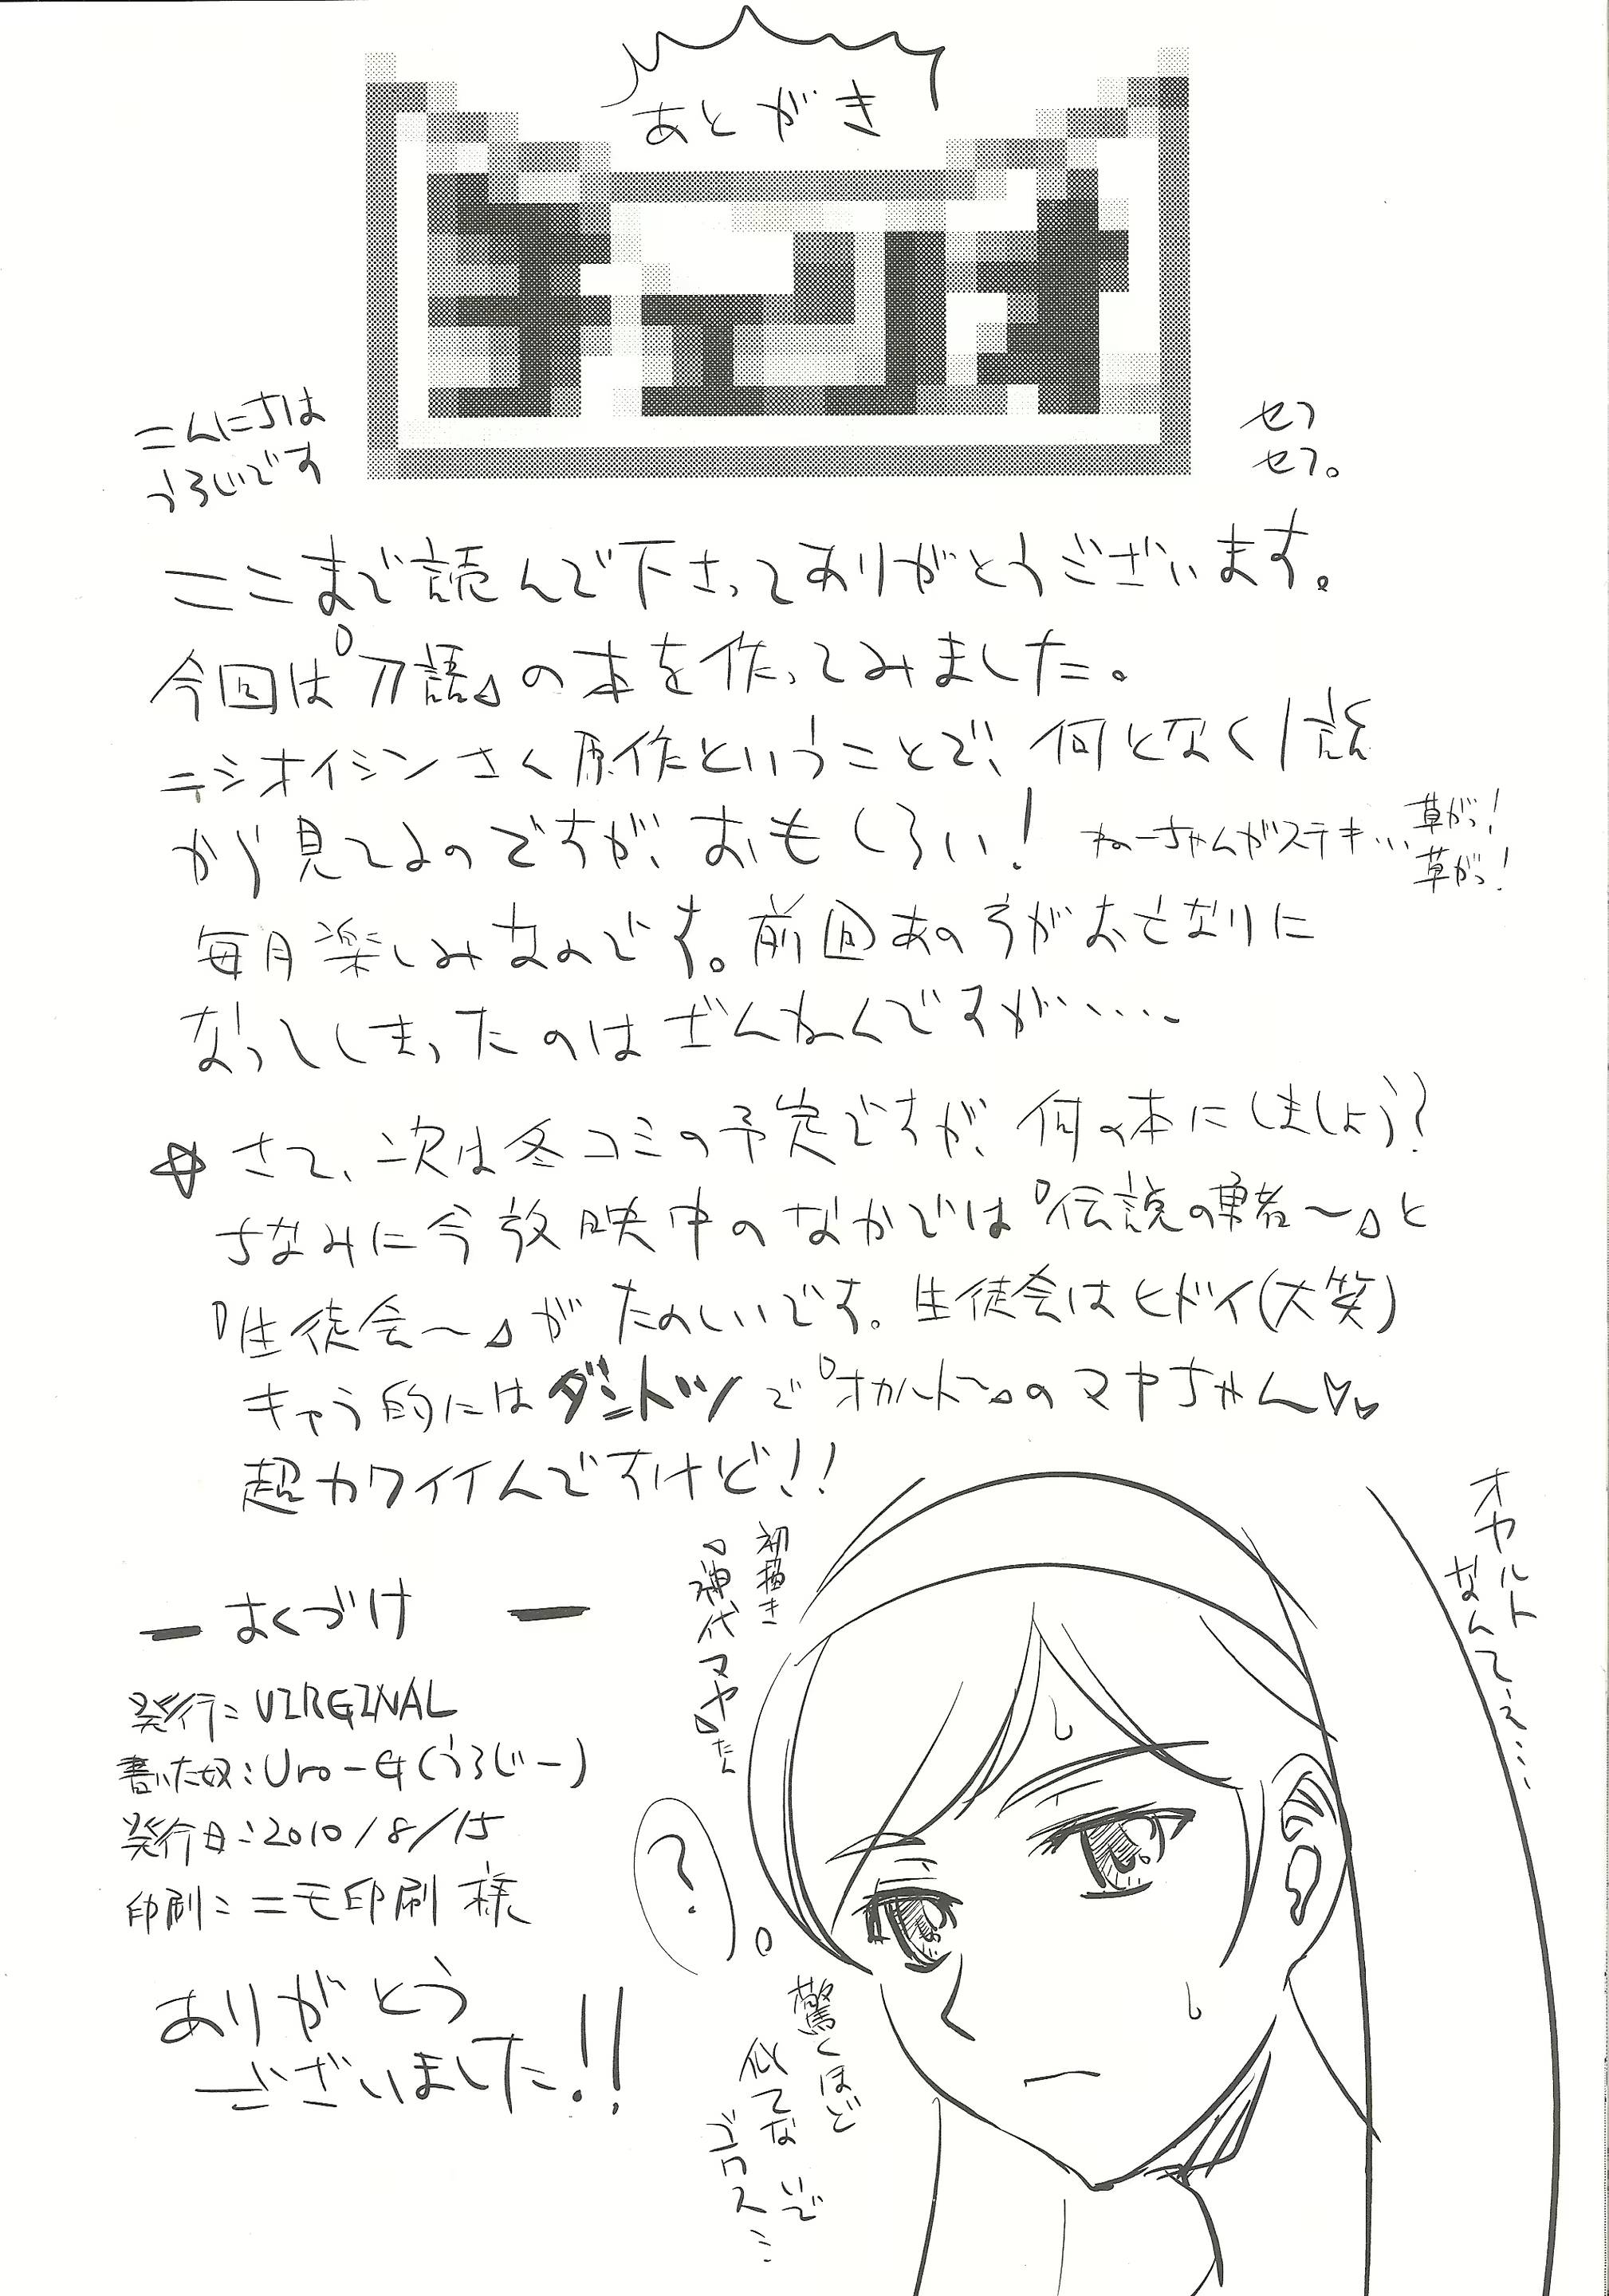 あとがき
チェリオ
こんにちは
うろじです
セフ
セフ。
ここまで読んで下さってありがとうございます。
今回は『刀語』の本を作ってみました。
ニシオイシンさく原作ということで、何となく1話
から見てるのですが、おもしろい!
ねーちゃんがステキ…
草がっ!
草がっ!
毎月楽しみなんです。前回あの子がおとなりに
なってしまったのはざんねんですが……
☆さて、次は冬コミの予定ですが、何の本にしましょう?
ちなみに今放映中のなかでは『伝説の勇者〜』と
『生徒会〜』がたのしいです。生徒会はヒドイ(大笑)
キャラ的にはダントツで『オカルト〜』のマヤちゃん♡
超カワイイんですけど!!
オカルト
なんてぇ…
初描き
『神代マヤ』たん
ーおくづけー
発行:VIRGINAL
書いた奴:Uro-G(うろじー)
発行日:2010/8/15
印刷:ニモ印刷 様
ありがとう
ございました!!
?
驚くほど
似てないで
ゴワス…